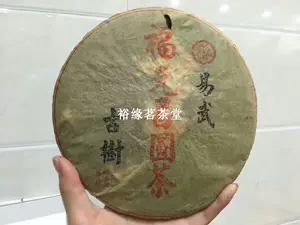 易武
福元昌圓茶
古樹
裕缘茗茶堂